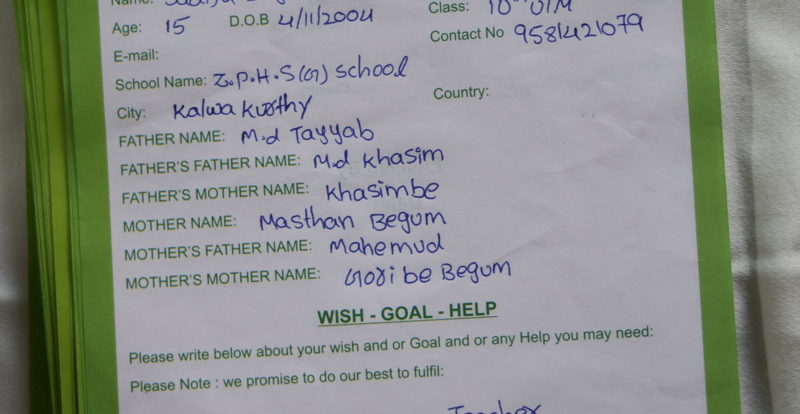 Name:
Age: 15 D.O.B 4/11/2004 Class: 10th U/M
E-mail: Contact No 9581421079
School Name: Z.P.H.S(G) school
City: Kalwa kurthy Country:
FATHER NAME: M.d Tayyab
FATHER'S FATHER NAME: M.d khasim
FATHER'S MOTHER NAME: khasimbe
MOTHER NAME: Masthan Begum
MOTHER'S FATHER NAME: Mahemud
MOTHER'S MOTHER NAME: Goribe Begum
WISH - GOAL - HELP
Please write below about your wish and or Goal and or any Help you may need:
Please Note : we promise to do our best to fulfil: